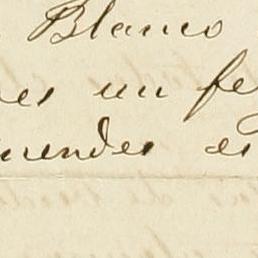 Blanco
es un fe
uendes es